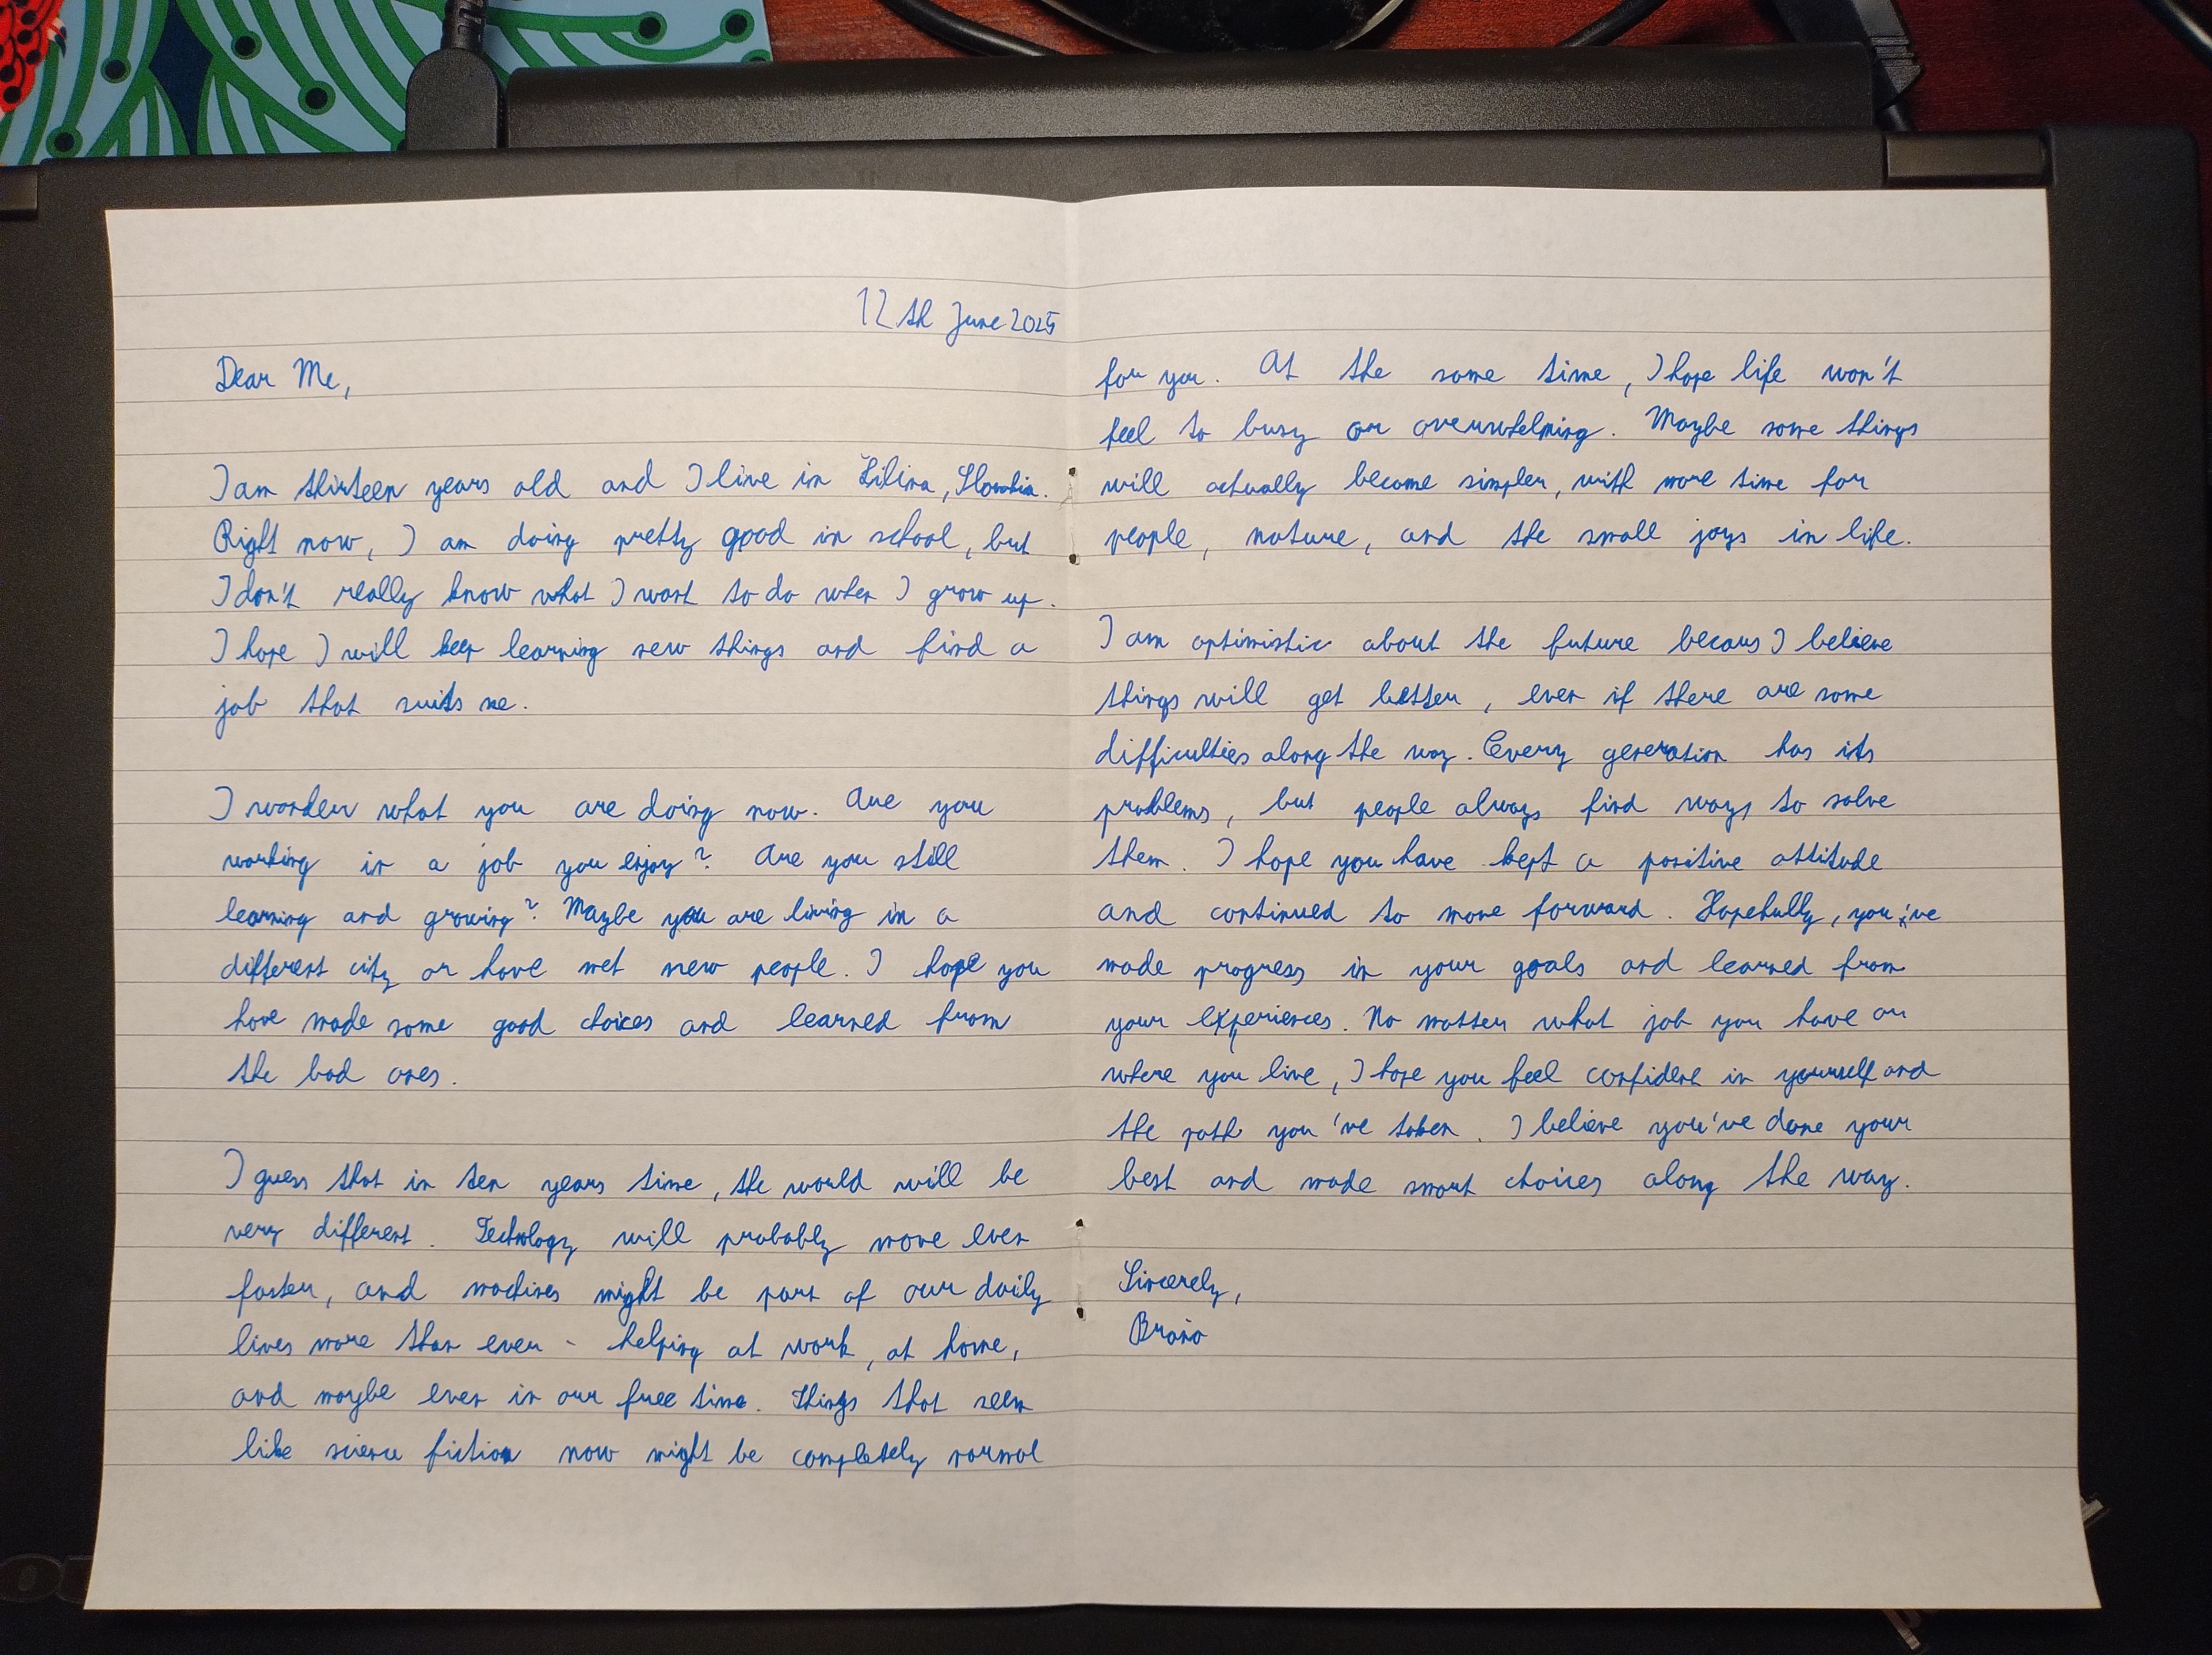 12th June 2025
Dear Me,
I am thirteen years old and I live in Žilina, Slovakia.
Right now, I am doing pretty good in school, but
I don't really know what I want to do when I grow up.
I hope I will keep learning new things and find a
job that suits me.
I wonder what you are doing now. Are you
working in a job you enjoy? Are you still
learning and growing? Maybe you are living in a
different city or have met new people. I hope you
have made some good choices and learned from
the bad ones.
I guess that in ten years time, the world will be
very different. Technology will probably move even
faster, and machines might be part of our daily
lives more than ever - helping at work, at home,
and maybe even in our free time. Things that seem
like science fiction now might be completely normal
for you. At the same time, I hope life won't
feel to busy or overwhelming. Maybe some things
will actually become simpler, with more time for
people, nature, and the small joys in life.
I am optimistic about the future becaus I believe
things will get better, even if there are some
difficulties along the way. Every generation has its
problems, but people always find ways to solve
them. I hope you have kept a positive attitude
and continued to move forward. Hopefully, you've
made progress in your goals and learned from
your experiences. No matter what job you have or
where you live, I hope you feel confident in yourself and
the path you've taken. I believe you've done your
best and made smart choices along the way.
Sincerely,